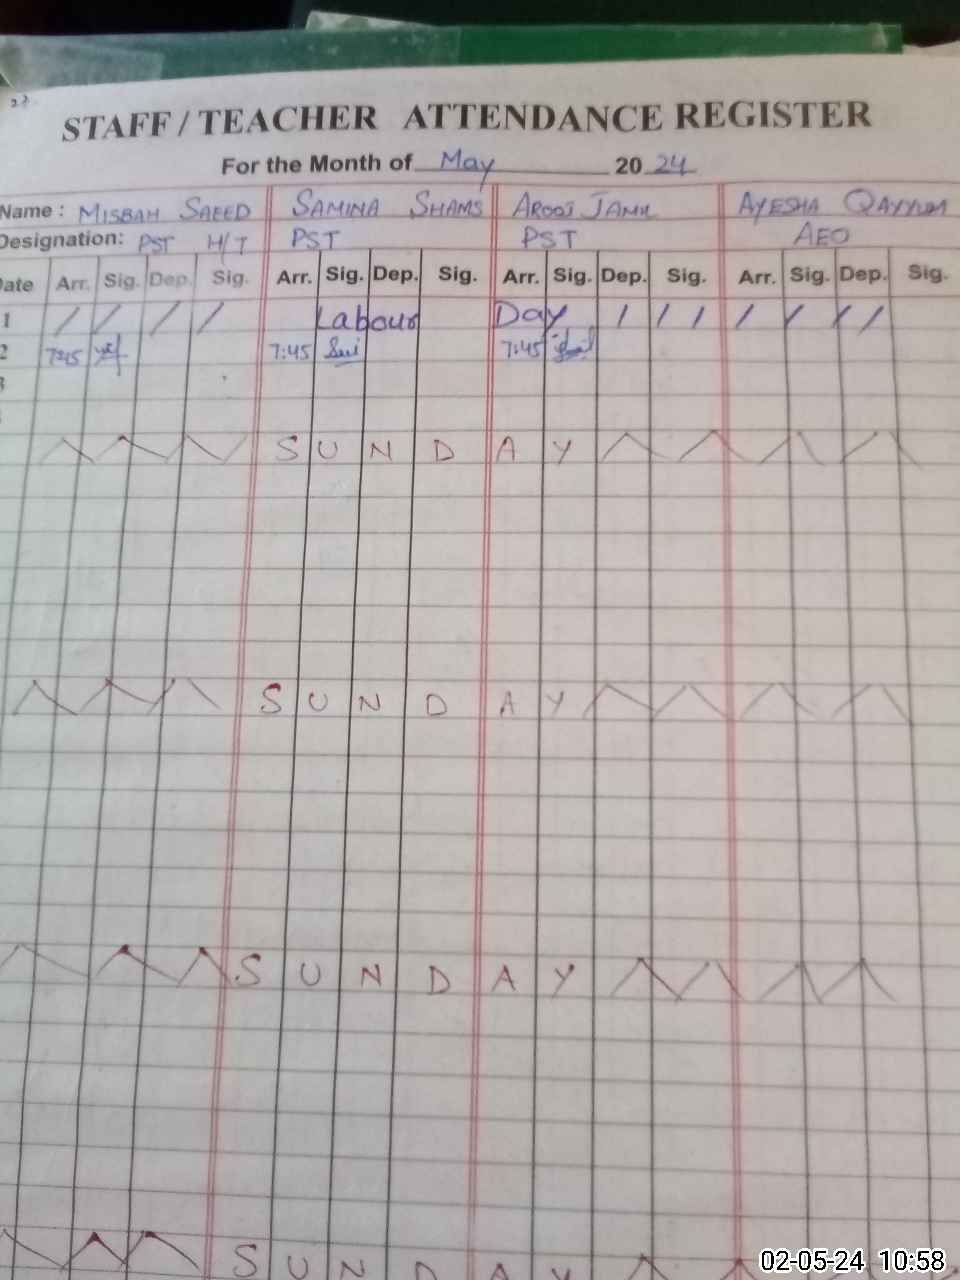 23
STAFF / TEACHER ATTENDANCE REGISTER
For the Month of May 20 24
Name : MISBAH SAEED SAMINA SHAMS AROOJ JAMIL AYESHA QAYYUM
Designation: PST H/T PST PST AEO
Date Arr. Sig. Dep. Sig. Arr. Sig. Dep. Sig. Arr. Sig. Dep. Sig. Arr. Sig. Dep. Sig.
1 / / / / Labour Day / / / / / / /
2 7:45 7:45 7:45
3
SUNDAY
SUNDAY
SUNDAY
SUNDAY
02-05-24 10:58